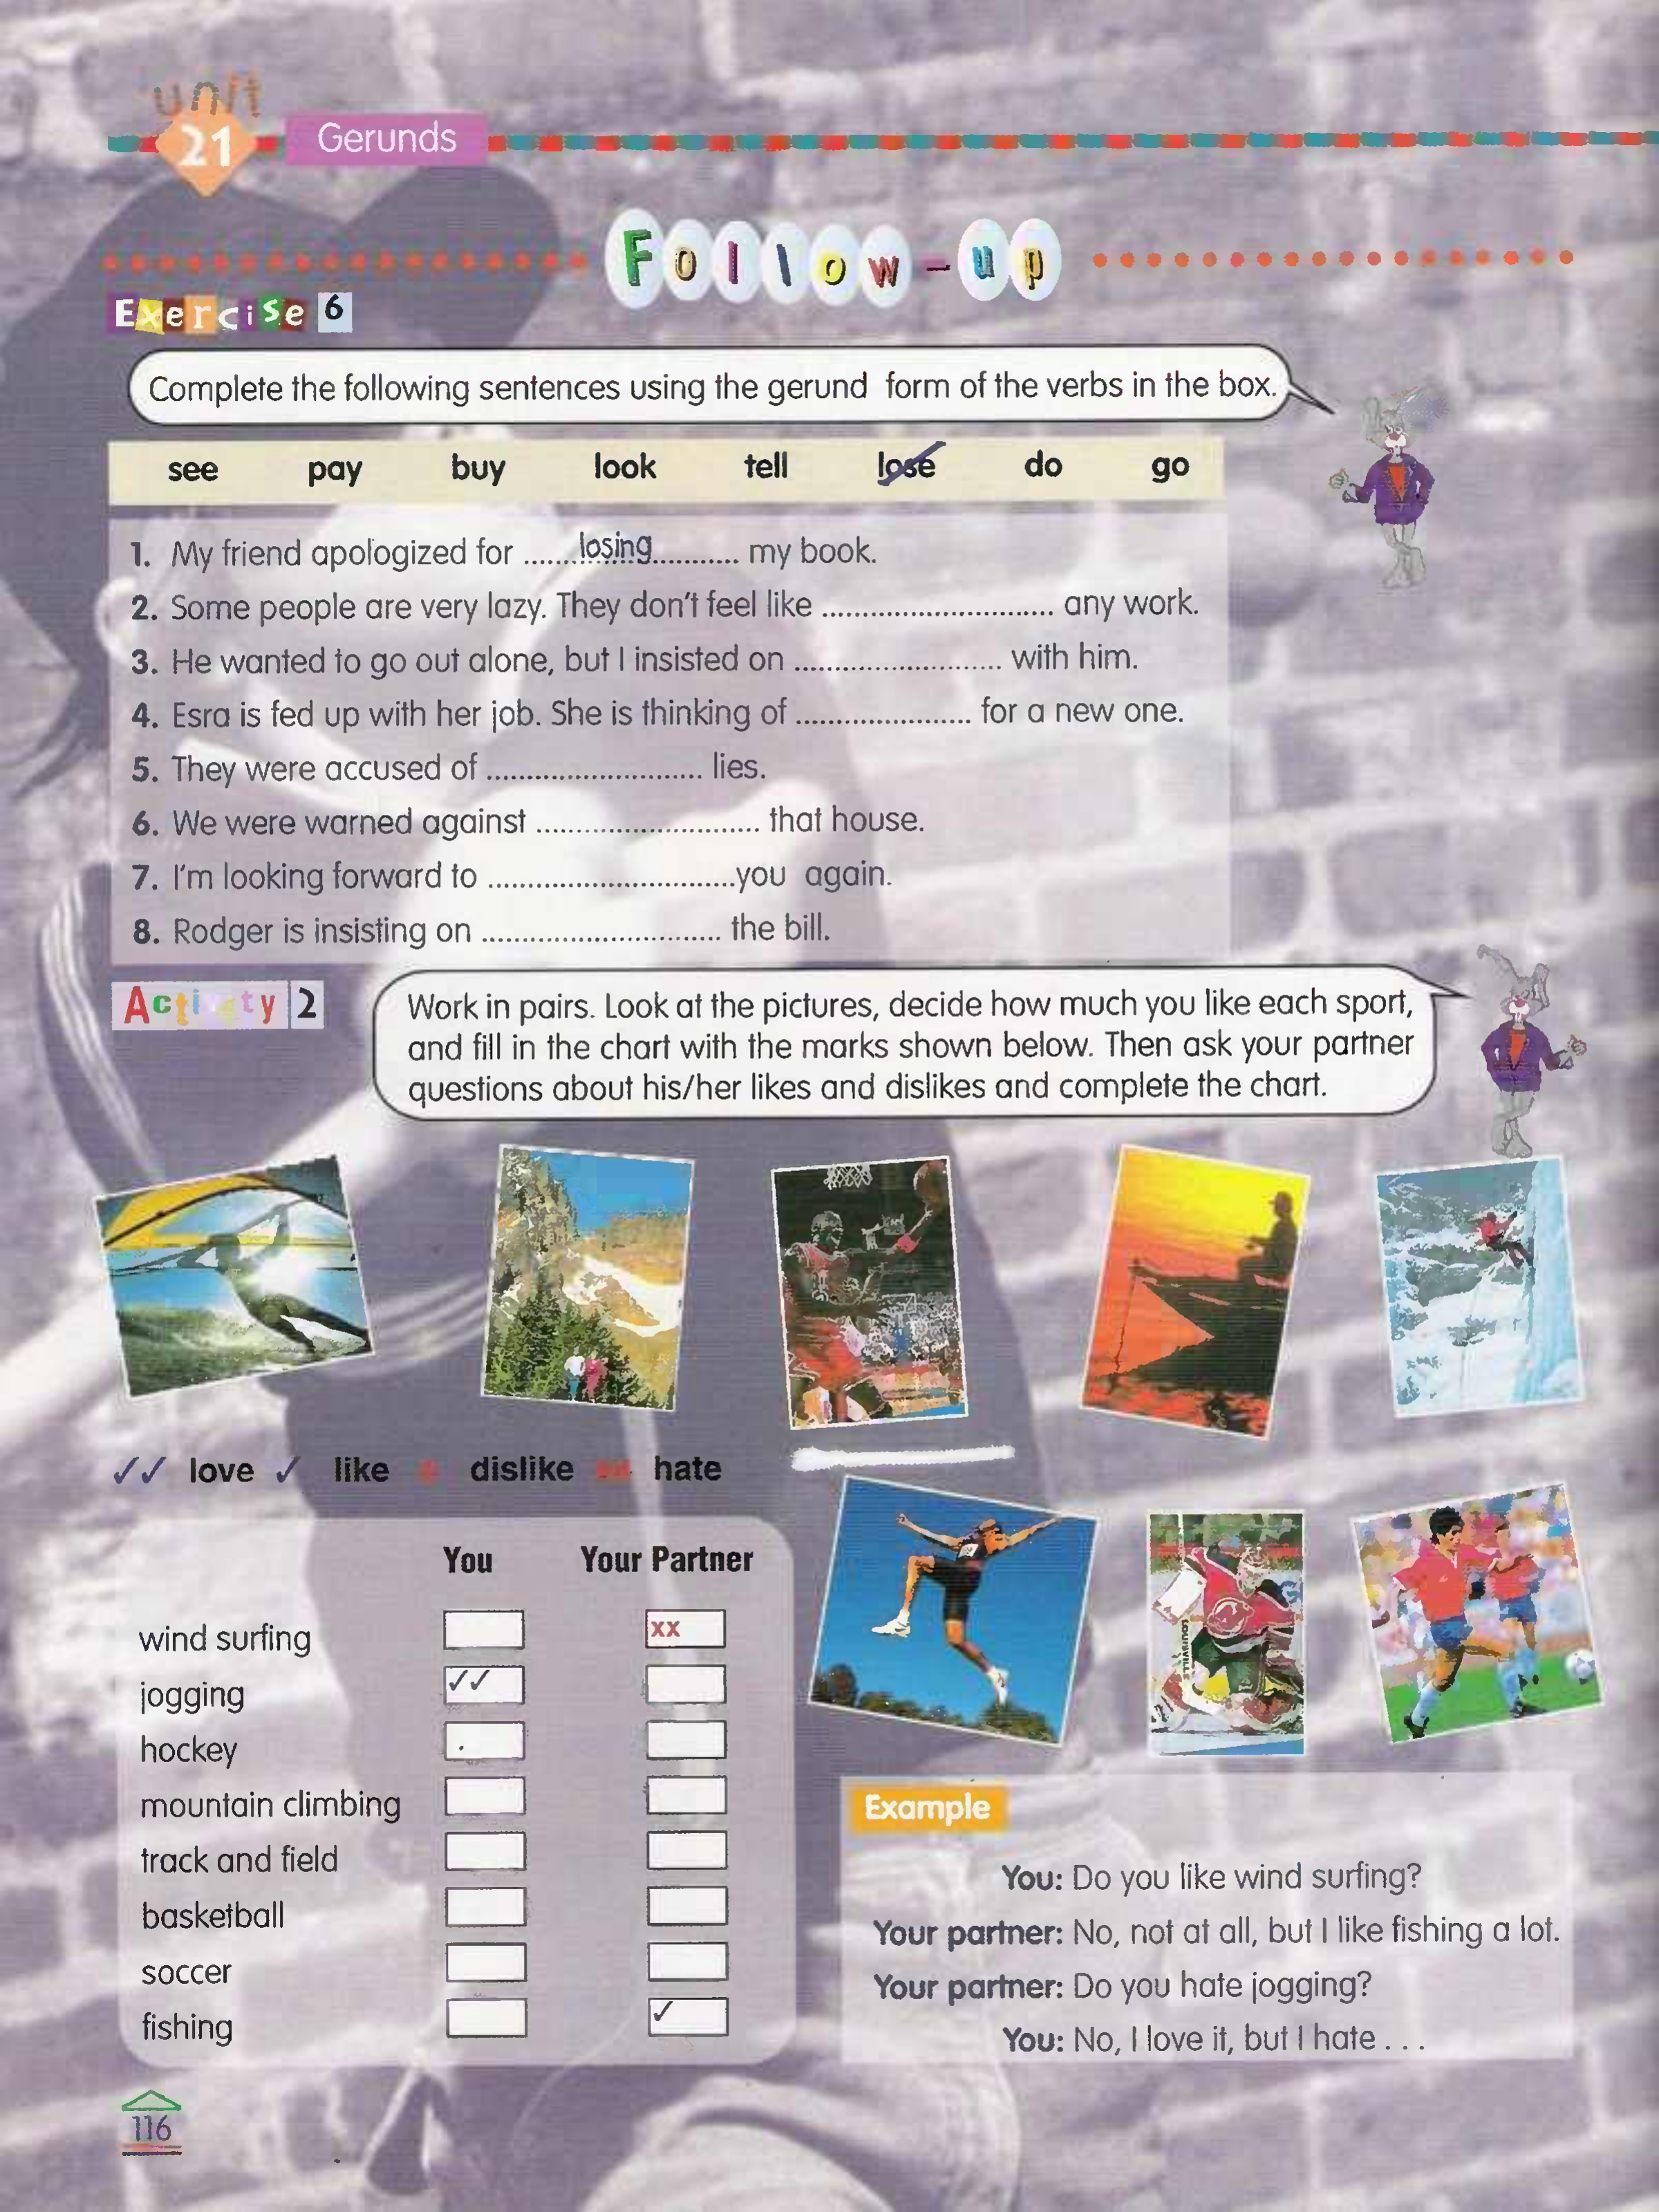 unit
21 Gerunds
Follow-up
Exercise 6
Complete the following sentences using the gerund form of the verbs in the box.
see pay buy look tell lose do go
1. My friend apologized for ......losing........... my book.
2. Some people are very lazy. They don't feel like ............................. any work.
3. He wanted to go out alone, but I insisted on .......................... with him.
4. Esra is fed up with her job. She is thinking of ...................... for a new one.
5. They were accused of ........................... lies.
6. We were warned against ............................ that house.
7. I'm looking forward to ...............................you again.
8. Rodger is insisting on .............................. the bill.
Activity 2
Work in pairs. Look at the pictures, decide how much you like each sport,
and fill in the chart with the marks shown below. Then ask your partner
questions about his/her likes and dislikes and complete the chart.
✓✓ love ✓ like x dislike xx hate
You Your Partner
wind surfing xx
jogging ✓✓
hockey
mountain climbing
track and field
basketball
soccer
fishing ✓
LOUISVILLE
Example
You: Do you like wind surfing?
Your partner: No, not at all, but I like fishing a lot.
Your partner: Do you hate jogging?
You: No, I love it, but I hate . . .
116